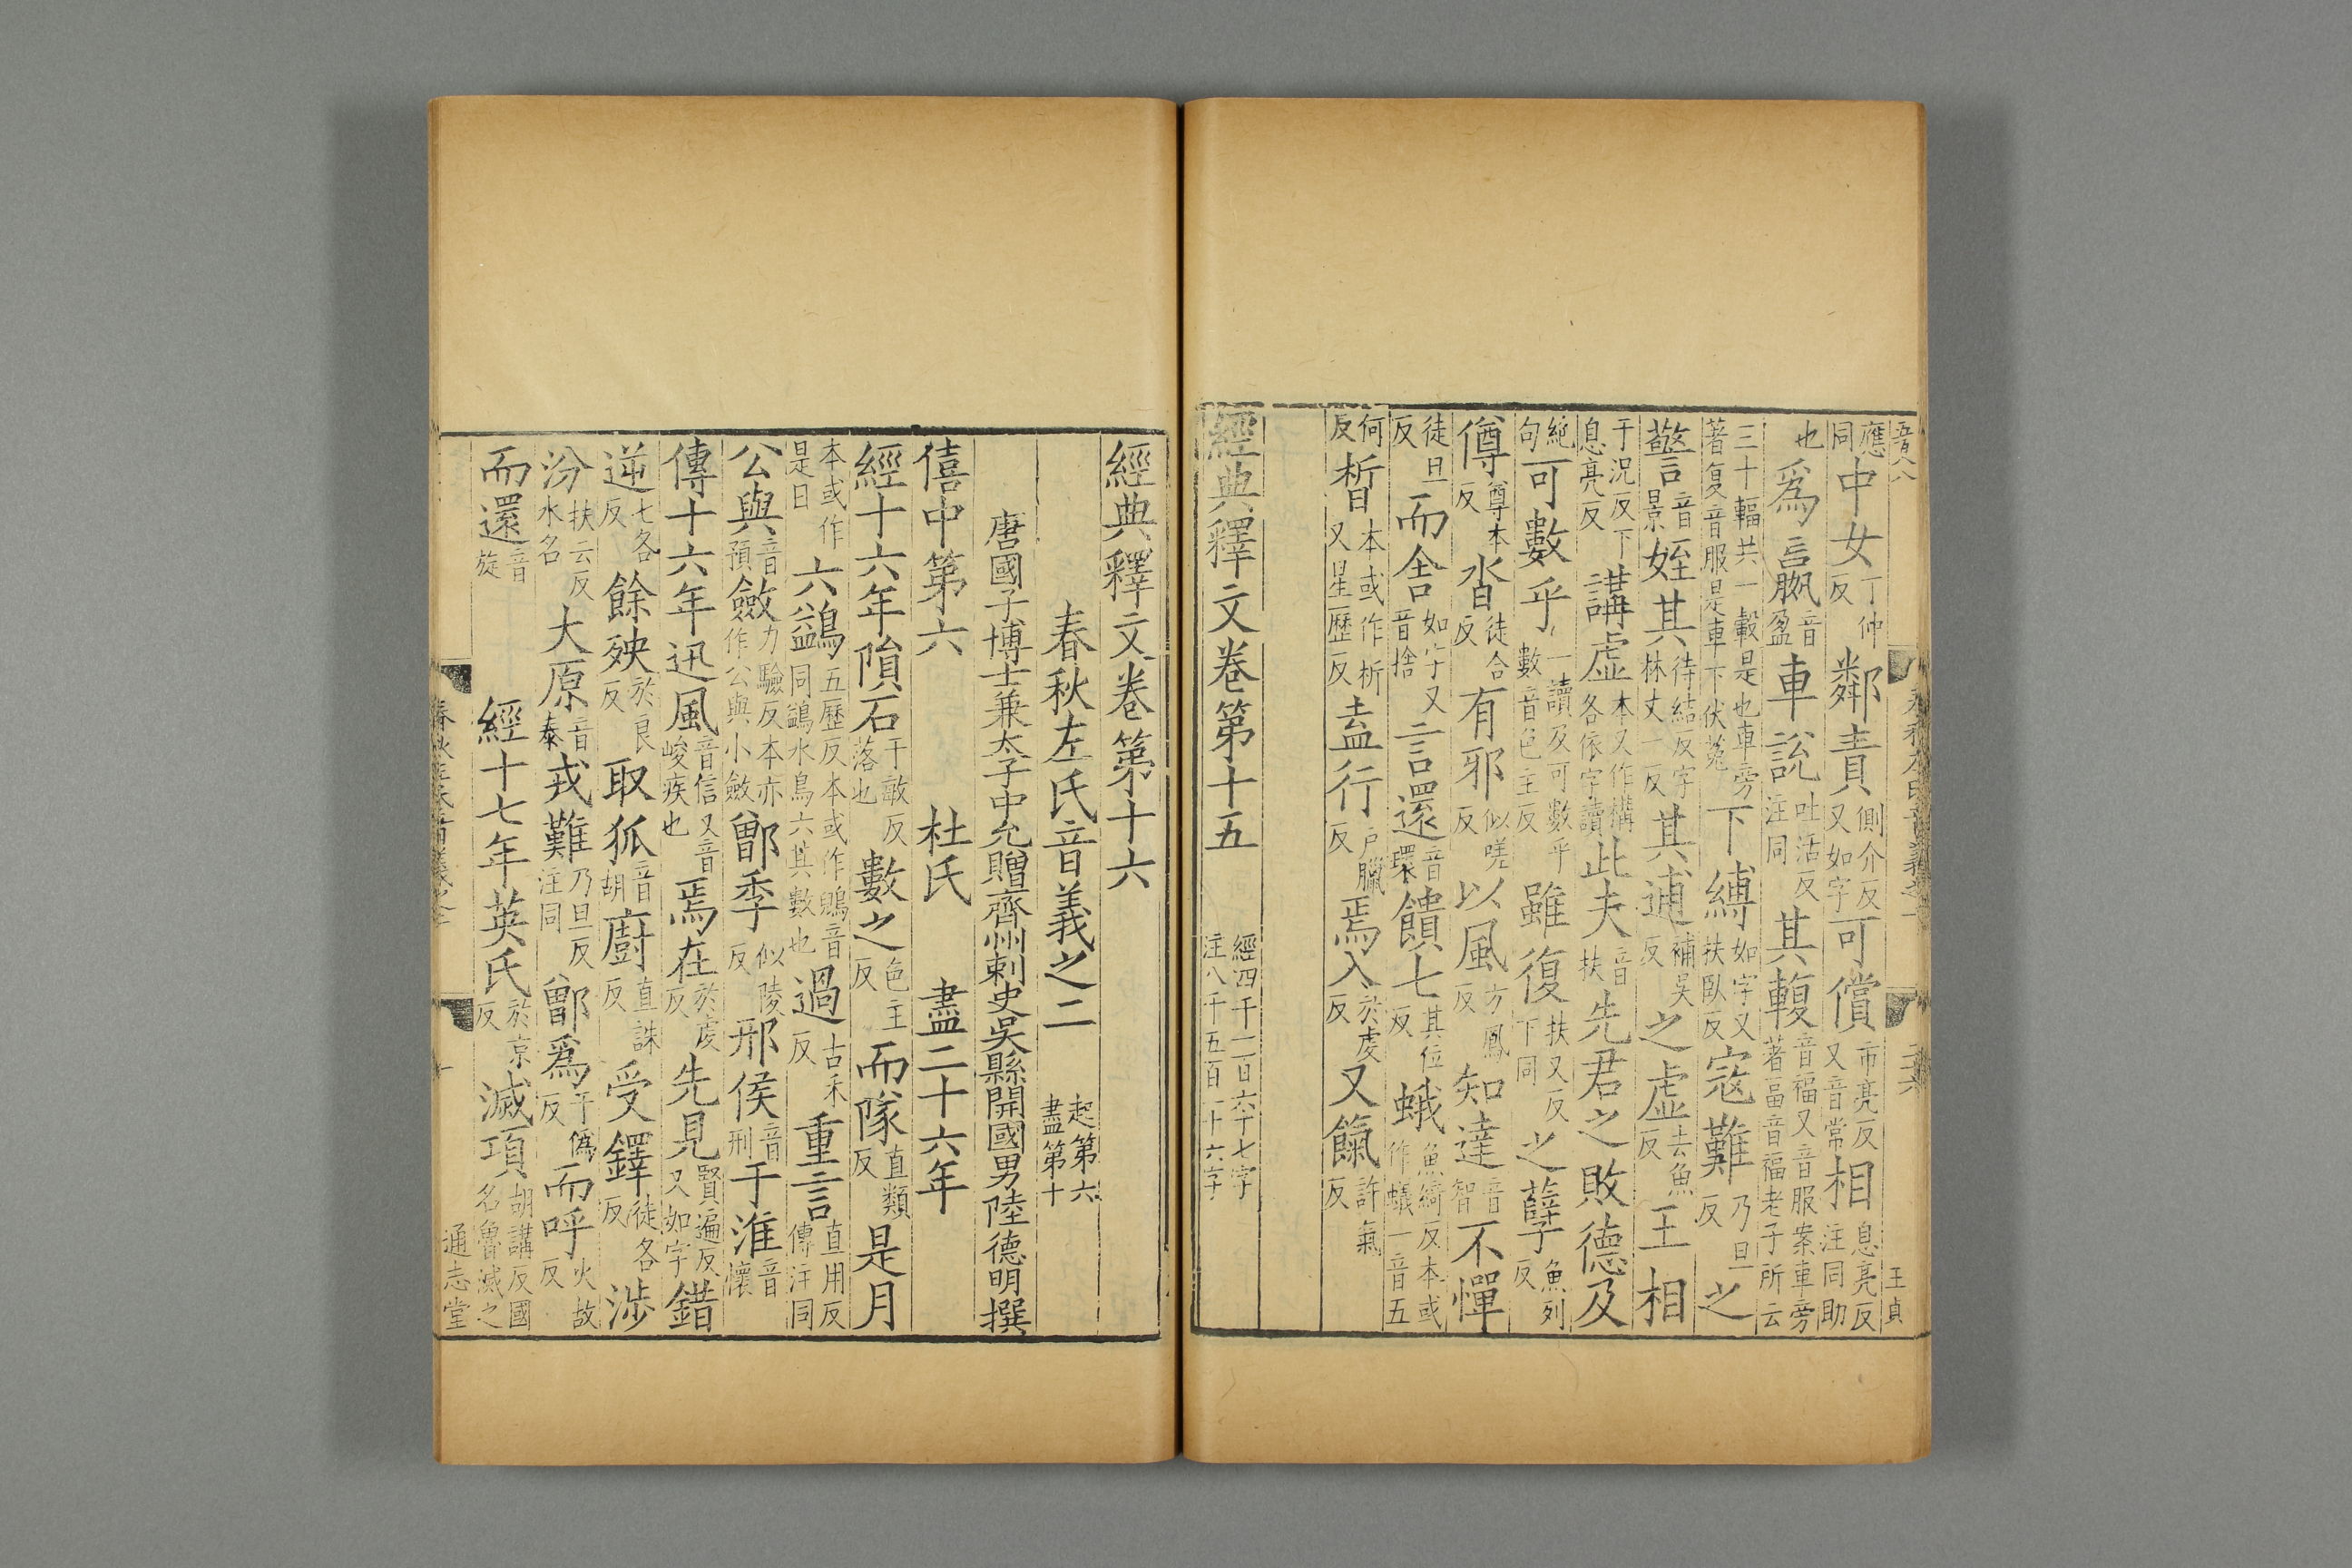 應同中女丁仲反鄰責側介反又如字可償市亮反又音常相息亮反注同助
也爲嬴音盈車說吐活反注同其輹音福又音服案車旁著畐音福老子所云
三十輻共一轂是也車旁著复音服是車下伏菟下縛如字又扶臥反寇難乃旦反之
警音景姪其待結反字林丈一反其逋補吳反之虛去魚反王相
于況反下息亮反講虛本又作構各依字讀此夫音扶先君之敗德及
絶句可數乎一讀及可數乎數音色主反雖復扶又反下同之孽魚列反
僔尊本反沓徒合反有邪似嗟反以風方鳳反知達音智不憚
徒旦反而舍如字又音捨言還音環饋七其位反蛾魚綺反本或作蟻一音五
何反晳本或作析又星歷反盍行戶臘反焉入於虔反又餼許氣反
經典釋文卷第十五 經四千一百六十七字注八千五百一十六字
王貞
經典釋文卷第十六
春秋左氏音義之二 起第六盡第十
唐國子博士兼太子中允贈齊州刺史吳縣開國男陸德明撰
僖中第六 杜氏 盡二十六年
經十六年隕石于敏反落也數之色主反而隊直類反是月
本或作是日六鷁五歷反本或作鶂音同鷁水鳥六其數也過古禾反重言直用反傳注同
公與音預斂力驗反本亦作公與小斂鄫季似陵反邢侯音刑于淮音懷
傳十六年迅風音信又音峻疾也焉在於虔反先見賢遍反又如字錯
逆七各反餘殃於良反取狐音胡廚直誅反受鐸徒各反涉
汾扶云反水名大原音泰戎難乃旦反注同鄫爲于僞反而呼火故反
而還音旋 經十七年英氏於京反滅項胡講反國名魯滅之
通志堂